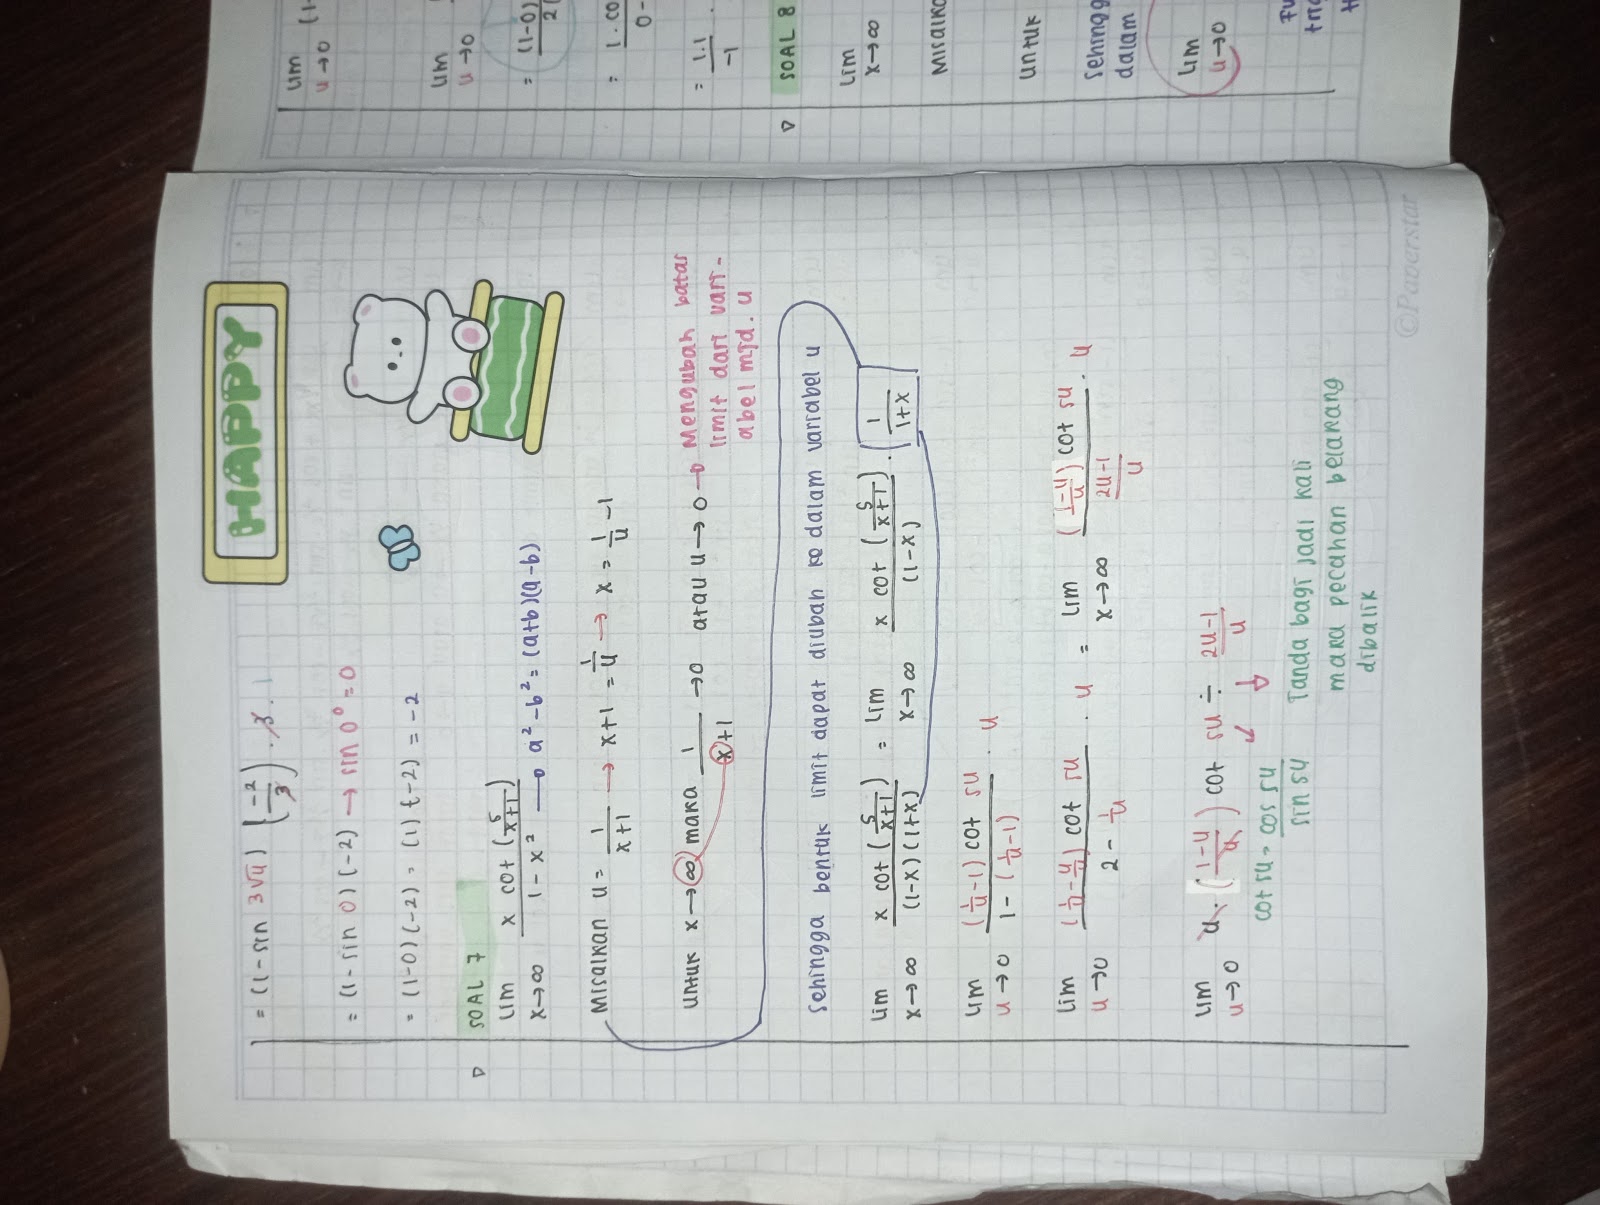 HAPPY
= (1 - sin 3√u) (-2/3) . 3 . 1
= (1 - sin 0) (-2) → sin 0° = 0
= (1-0) (-2) = (1) (-2) = -2
▷ SOAL 7
lim x→∞ x cot (5/x+1) / 1 - x² → a² - b² = (a+b)(a-b)
Misalkan u = 1/x+1 → x+1 = 1/u → x = 1/u - 1
untuk x→∞ maka 1/x+1 → 0 atau u→0 → Mengubah batas
limit dari vari-
abel mjd. u
Sehingga bentuk limit dapat diubah ke dalam variabel u
lim x→∞ x cot (5/x+1) / (1-x)(1+x) = lim x→∞ x cot (5/x+1) / (1-x) . (1/1+x)
lim u→0 (1/u - 1) cot 5u / 1 - (1/u - 1) . u
lim u→0 (1/u - u/u) cot 5u / 2 - 1/u . u = lim x→∞ (1-u/u) cot 5u / 2u-1/u . u
lim u→0 u . (1-u/u) cot 5u ÷ 2u-1/u
cot 5u = cos 5u / sin 5u
Tanda bagi jadi kali
maka pecahan belakang
dibalik
©Paperstar
lim u→0 (1-
lim u→0
= (1-0)
= 1 . co
0 -
= 1.1 / -1
▷ SOAL 8
lim x→∞
Misalka
untuk
Sehingg
dalam
lim u→0